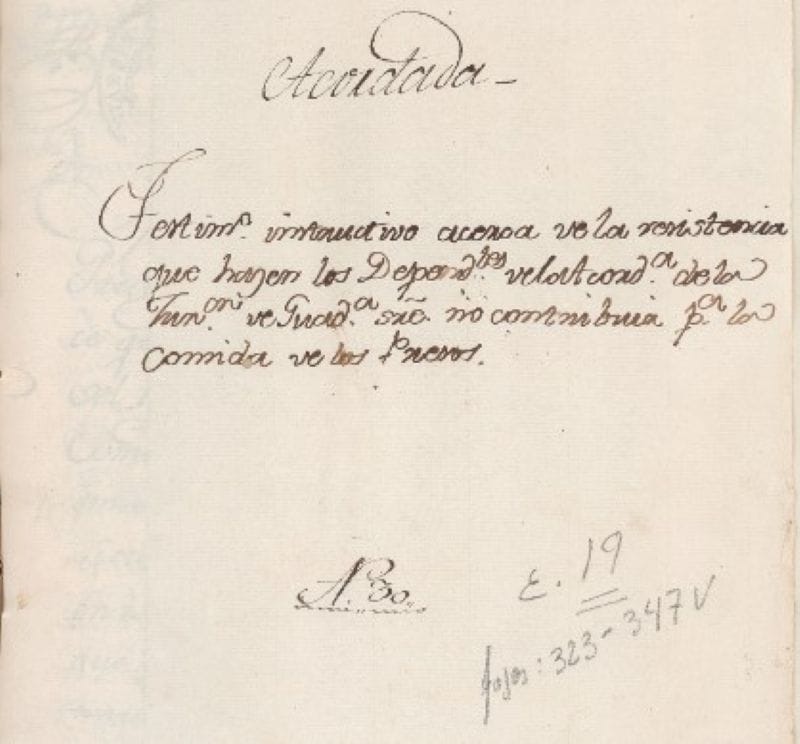 Acordada
Testim.º instructivo acerca de la resistencia
que hazen los Depend.tes de la Acord.a de la
Jur.on de Guad.a sre. no contribuir p.a la
Comida de los Presos.
N. 30.
E. 19
fojas: 323-347v